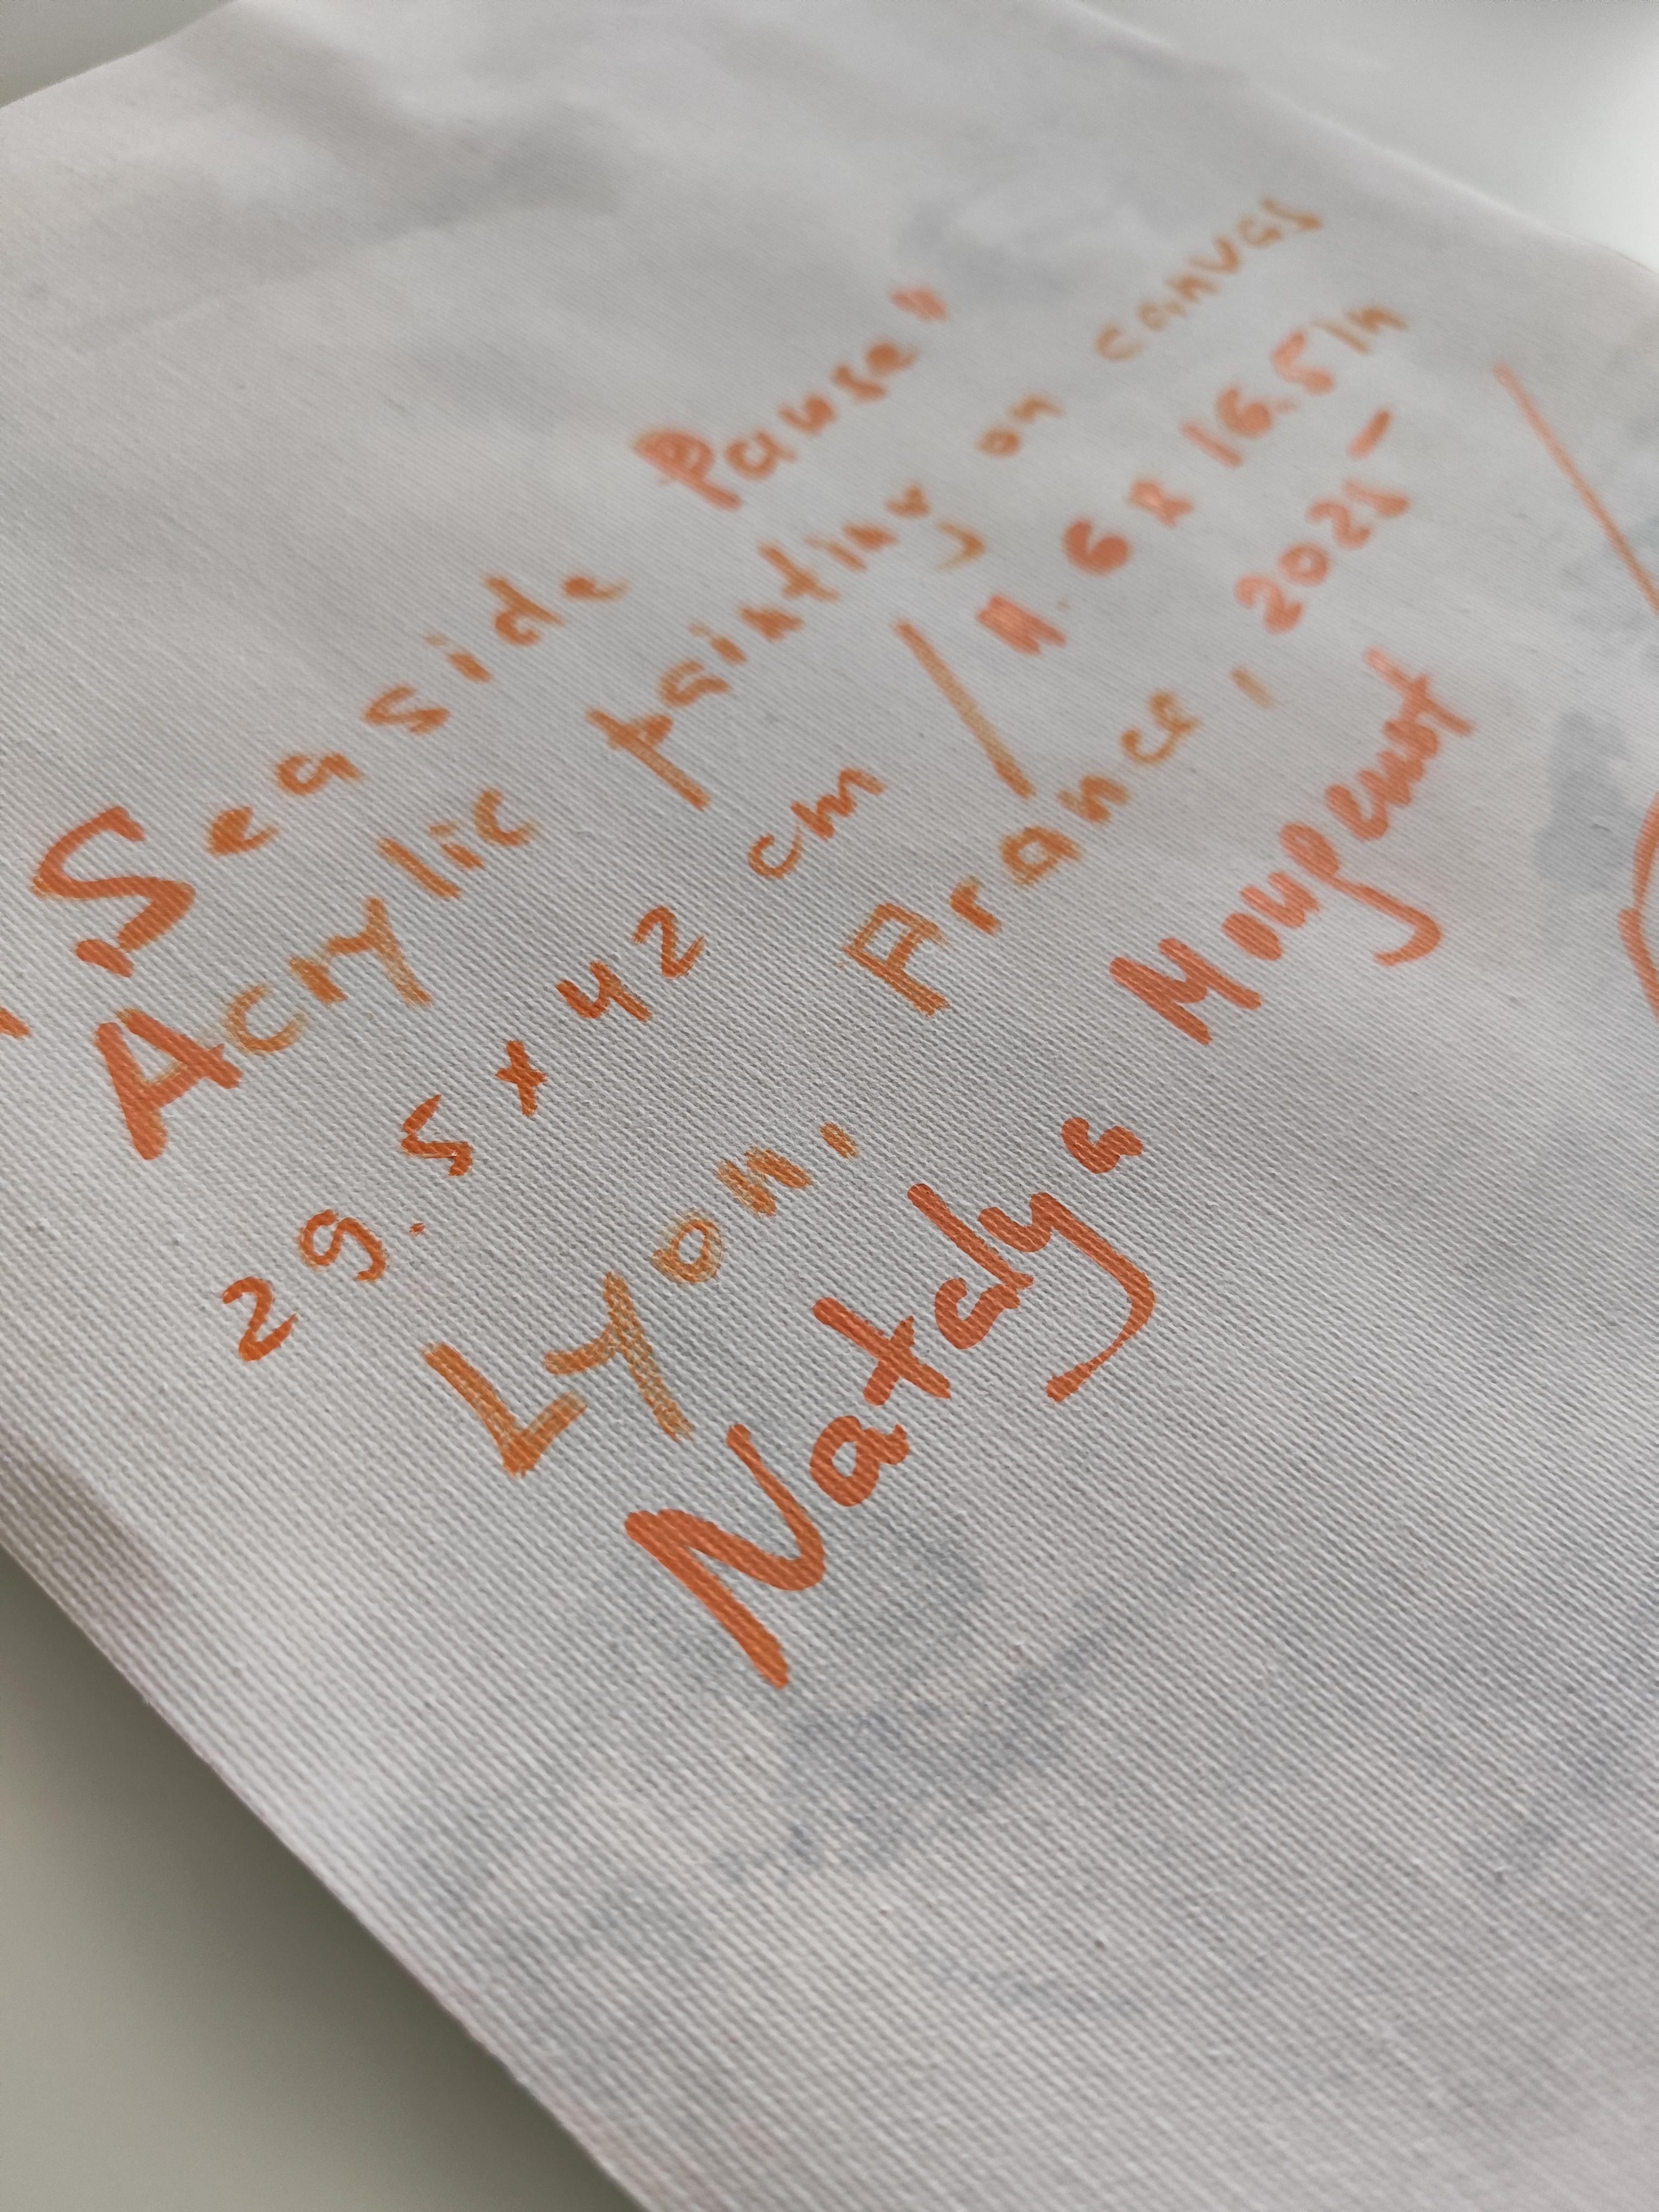 "Seaside Pause"
Acrylic painting on canvas
29.5 x 42 cm / 11.6 x 16.5 in
Lyon, France, 2025 -
Natalya Mougenot